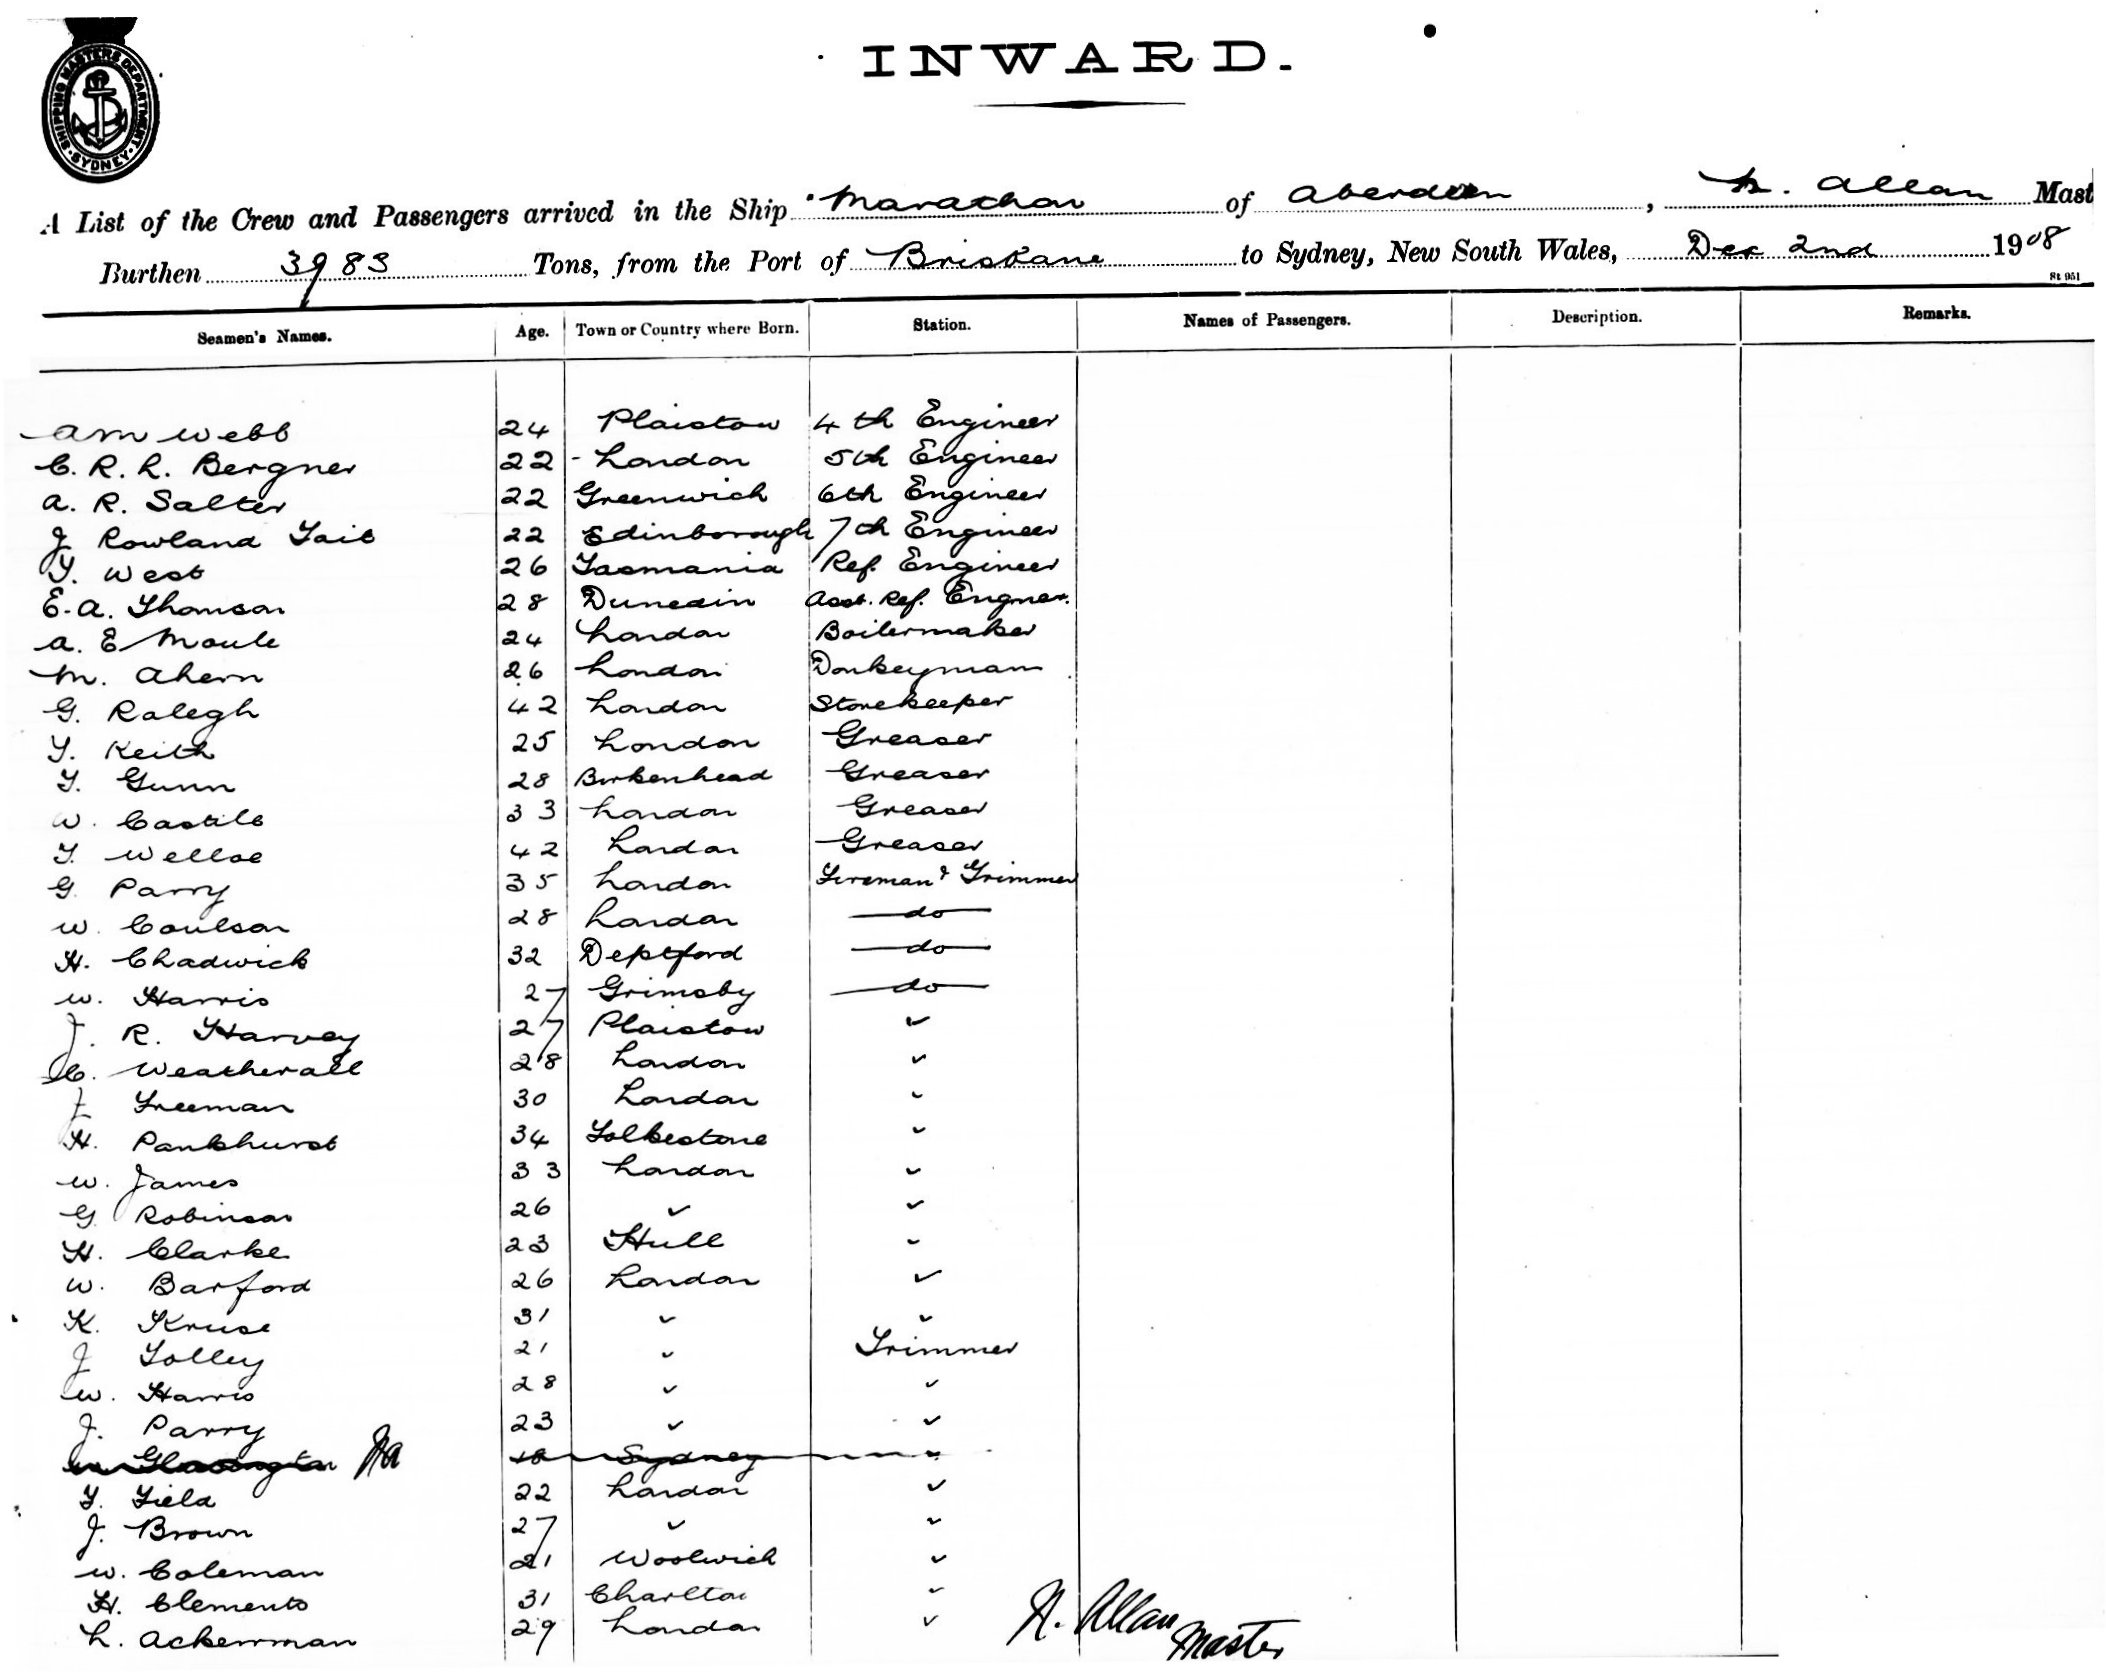 SHIPPING MASTERS DEPARTMENT · SYDNEY ·
INWARD.
A List of the Crew and Passengers arrived in the Ship Marathon of Aberdeen, N. Allan Mast
Burthen 3983 Tons, from the Port of Brisbane to Sydney, New South Wales, Dec 2nd 1908
St 951
Seamen's Names. Age. Town or Country where Born. Station. Names of Passengers. Description. Remarks.
A M Webb 24 Plaistow 4th Engineer
C. R. L. Bergner 22 London 5th Engineer
A. R. Salter 22 Greenwich 6th Engineer
J Rowland Tait 22 Edinborough 7th Engineer
T. West 26 Tasmania Ref. Engineer
E. A. Thomson 28 Dunedin Asst. Ref. Engner.
A. E Moule 24 London Boilermaker
M. Ahern 26 London Donkeyman
G. Ralegh 42 London Storekeeper
T. Keith 25 London Greaser
T. Gunn 28 Birkenhead Greaser
W. Castile 33 London Greaser
T. 42 London Greaser
G. Parry 35 London Fireman & Trimmer
W. Coulson 28 London do
H. Chadwick 32 Deptford do
W. Harris 27 Grimsby do
J. R. Harvey 27 Plaistow ✓
C. Weatherall 28 London ✓
J Freeman 30 London ✓
H. Pankhurst 34 Folkestone ✓
W. James 33 London ✓
G Robinson 26 ✓ ✓
H. Clarke 23 Hull ✓
W. Barford 26 London ✓
K. Kruse 31 ✓ ✓
J Tolley 21 ✓ Trimmer
W. Harris 28 ✓ ✓
J. Parry 23 ✓ ✓
NA 18 Sydney ✓
T. Field 22 London ✓
J. Brown 27 ✓ ✓
W. Coleman 21 Woolwich ✓
H. Clements 31 Charlton ✓
L. Ackerman 29 London ✓
N. Allan
Master